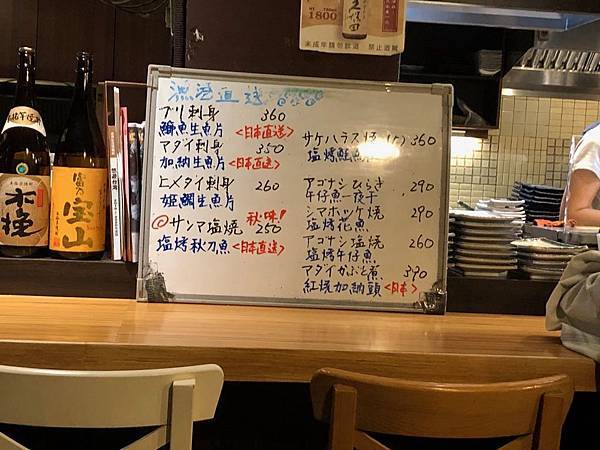 1800
久保田
未成年請勿飲酒 禁止酒駕
木挽
宝山
漁港直送
ブリ刺身 360
鰤魚生魚片 <日本直送>
マダイ刺身 350
加納生魚片 <日本直送>
ヒメダイ刺身 260
姫鯛生魚片
秋味!
◎サンマ塩焼 250
塩烤秋刀魚 <日本直送>
サケハラス焼 360
塩烤鮭魚
アゴナシひらき 290
午仔魚一夜干
シマホッケ焼 290
塩烤花魚
アゴナシ塩焼 260
塩烤午仔魚
マダイかぶと煮 390
紅焼加納頭 <日本>